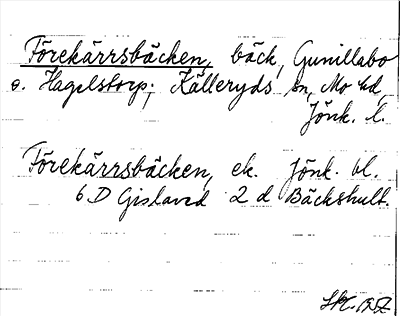 Förekärrsbäcken, bäck, Gunillabo
o. Hagelstorp, Källeryds sn, Mo hd,
Jönk. l.
Förekärrsbäcken, ek. Jönk. bl.
6D Gislaved 2 d Bäckshult.